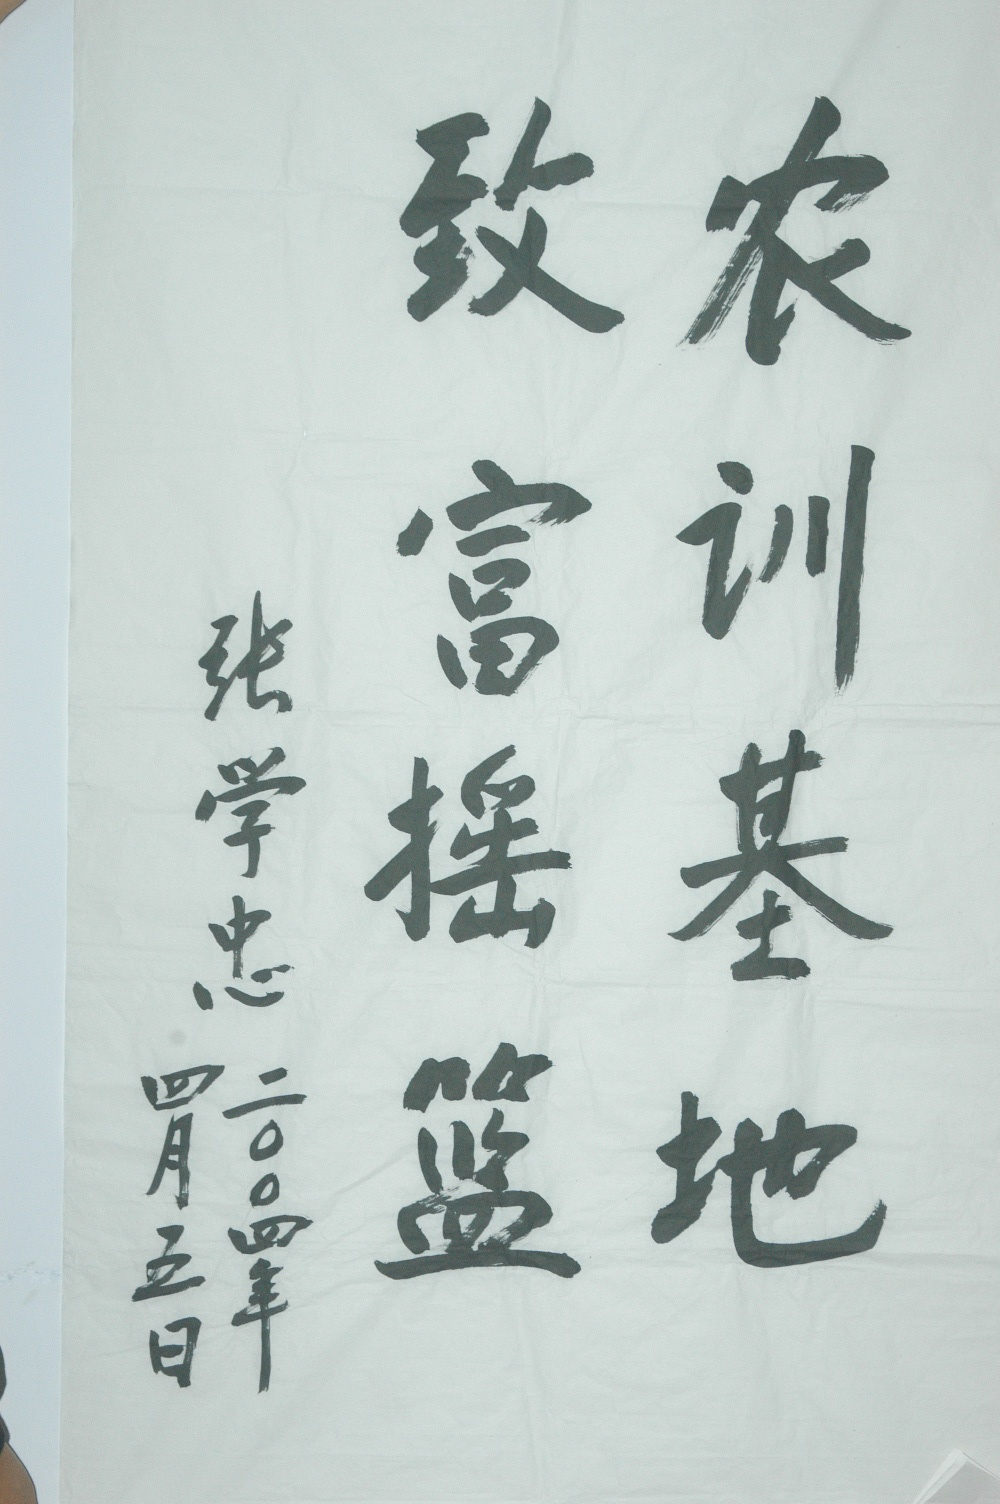 农训基地
致富摇篮
张学忠
二〇〇四年
四月五日